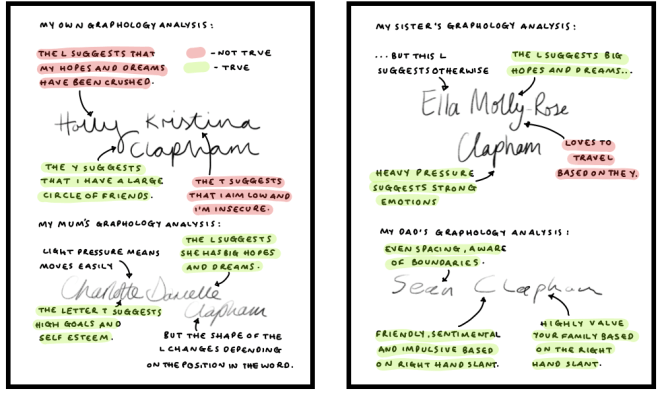 MY OWN GRAPHOLOGY ANALYSIS:
THE L SUGGESTS THAT
MY HOPES AND DREAMS
HAVE BEEN CRUSHED.
- NOT TRUE
- TRUE
Holly Kristina
Clapham
THE Y SUGGESTS
THAT I HAVE A LARGE
CIRCLE OF FRIENDS.
THE T SUGGESTS
THAT I AIM LOW AND
I'M INSECURE.
MY MUM'S GRAPHOLOGY ANALYSIS:
LIGHT PRESSURE MEANS
MOVES EASILY
THE L SUGGESTS
SHE HAS BIG HOPES
AND DREAMS.
Charlotte Danielle
Clapham
THE LETTER T SUGGESTS
HIGH GOALS AND
SELF ESTEEM.
BUT THE SHAPE OF THE
L CHANGES DEPENDING
ON THE POSITION IN THE WORD.
MY SISTER'S GRAPHOLOGY ANALYSIS:
... BUT THIS L
SUGGESTS OTHERWISE
THE L SUGGESTS BIG
HOPES AND DREAMS...
Ella Molly-Rose
Clapham
LOVES TO
TRAVEL
BASED ON THE Y.
HEAVY PRESSURE
SUGGESTS STRONG
EMOTIONS
MY DAD'S GRAPHOLOGY ANALYSIS:
EVEN SPACING, AWARE
OF BOUNDARIES.
Sean Clapham
FRIENDLY, SENTIMENTAL
AND IMPULSIVE BASED
ON RIGHT HAND SLANT.
HIGHLY VALUE
YOUR FAMILY BASED
ON THE RIGHT
HAND SLANT.